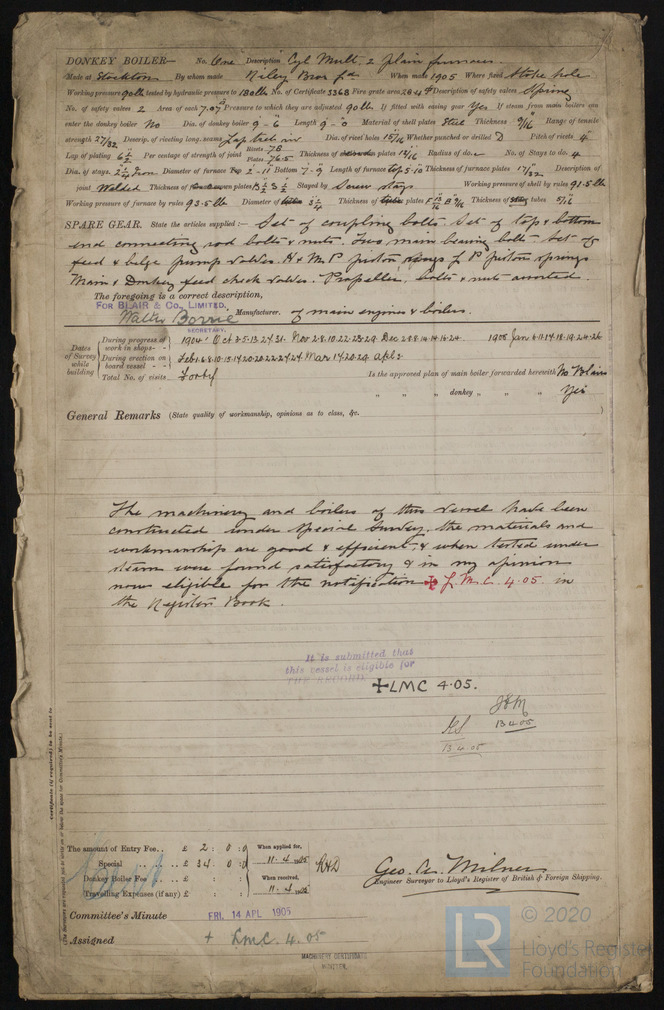 DONKEY BOILER— No. One Description Cyl Mult. 2 plain furnaces.
Made at Stockton By whom made Riley Bros Ld When made 1905 Where fixed Stoke hole
Working pressure 90 lb tested by hydraulic pressure to 180 lb No. of Certificate 3368 Fire grate area 28 Description of safety valves Spring
No. of safety valves 2 Area of each 7.07 Pressure to which they are adjusted 90 lb If fitted with easing gear Yes If steam from main boilers can
enter the donkey boiler No Dia. of donkey boiler 9-6 Length 9-0 Material of shell plates Steel Thickness 9/16 Range of tensile
strength 27/32 Descrip. of riveting long. seams Lap treb riv Dia. of rivet holes 15/16 Whether punched or drilled D Pitch of rivets 4
Lap of plating 6 1/2 Per centage of strength of joint Rivets 78 Plates 76.5 Thickness of plates Radius of do. No. of Stays to do. 4
Dia. of stays. 2 1/4 Iron Diameter of furnace Top 2-11 Bottom 7-9 Length of furnace top 5-10 Thickness of furnace plates 17/32 Description of
joint Welded Thickness of plates Stayed by Screw stays Working pressure of shell by rules 91.5 lb
Working pressure of furnace by rules 93.5 lb Diameter of 3 1/4 Thickness of plates F 13/16 B 11/16 Thickness of tubes 5/16
SPARE GEAR. State the articles supplied:— Set of coupling bolts. Set of top & bottom
end connecting rod bolts & nuts. Two main bearing bolts. Set of
feed & bilge pump valves. H & M P piston rings L P piston springs
Main & Donkey feed check valves. Propeller, bolts & nuts assorted.
The foregoing is a correct description,
FOR BLAIR & Co., LIMITED,
Walter Borrie Manufacturer. of main engines & boilers.
SECRETARY.
Dates of Survey while building
During progress of work in shops - - 1904: Oct 3.5.13.24.31. Nov 2.8.10.22.23.29. Dec 2.8.9.14.14.16.24 1905 Jan 6.11.14.18.19.24.26
During erection on board vessel - - Feb 1.6.8.10.15.17.20.20.22.24.27. Mar 17.20.29. Apl 3
Total No. of visits Forty Is the approved plan of main boiler forwarded herewith No Blairs
" " " donkey " " " Yes
General Remarks (State quality of workmanship, opinions as to class, &c.
The machinery and boilers of this vessel have been
constructed under special survey. the materials and
workmanship are good & efficient, & when tested under
steam were found satisfactory & in my opinion
now eligible for the notification ✠ L.M.C. 4.05 in
the Register Book.
It is submitted that
this vessel is eligible for
THE RECORD
✠ LMC 4.05.
13.4.05
13.4.05
Certificate (if required) to be sent to
The amount of Entry Fee.. £ 2 : 0 : 0 When applied for,
Special .. .. .. .. £ 34 : 0 : 0 11.4.1905
Donkey Boiler Fee .. .. £ : : When received,
Travelling Expenses (if any) £ : : 11.4.1905
Geo. A. Milner
Engineer Surveyor to Lloyd's Register of British & Foreign Shipping.
Committee's Minute FRI. 14 APL 1905
Assigned + LMC. 4.05
MACHINERY CERTIFICATE
WRITTEN.
LR © 2020
Lloyd's Register
Foundation